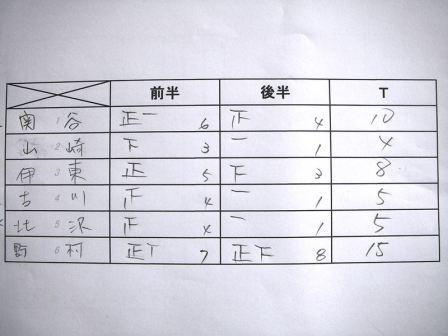 前半 後半 T
関 1 谷 正一 6 正 4 10
山 2 崎 下 3 一 1 4
伊 3 東 正 5 下 3 8
古 4 川 正 4 一 1 5
北 5 沢 正 4 一 1 5
野 6 村 正T 7 正下 8 15